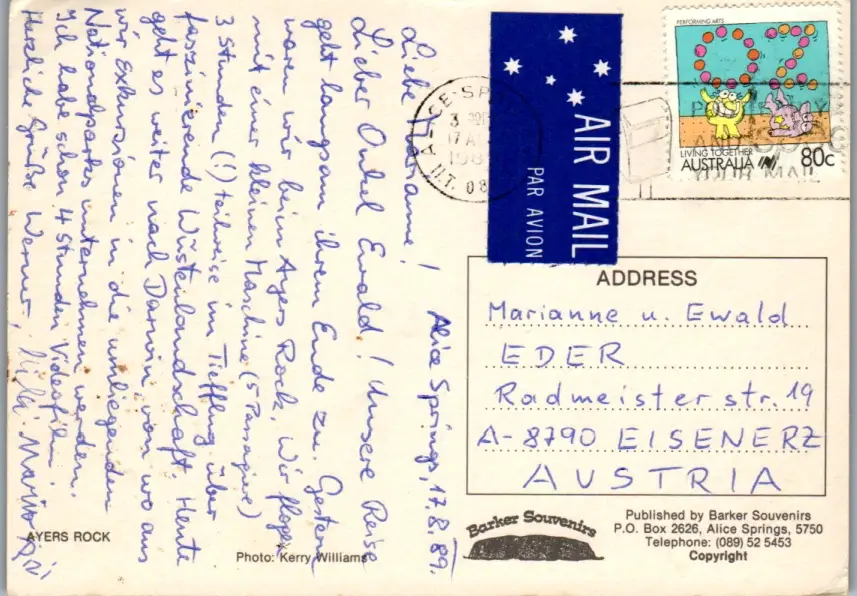 Liebe Marianne!
Alice Springs, 17.8.89.
Lieber Onkel Ewald! Unsere Reise
geht langsam ihrem Ende zu. Gestern
waren wir beim Ayers Rock. Wir flogen
mit einer kleinen Maschine (5 Passagiere)
3 Stunden (!) teilweise im Tiefflug über
faszinierende Wüstenlandschaft. Heute
geht es weiter nach Darwin von wo aus
wir Exkursionen in die umliegenden
Nationalparks unternehmen werden.
Ich habe schon 4 Stunden Videofilm.
Herzliche Grüße Werner,
AYERS ROCK
Photo: Kerry Williams
AIR MAIL
PAR AVION
N.T. 08
PERFORMING ARTS
OZ
LIVING TOGETHER
AUSTRALIA 80c
YOUR MAIL
ADDRESS
Marianne u. Ewald
EDER
Radmeisterstr. 19
A-8790 EISENERZ
AUSTRIA
Barker Souvenirs
Published by Barker Souvenirs
P.O. Box 2626, Alice Springs, 5750
Telephone: (089) 52 5453
Copyright